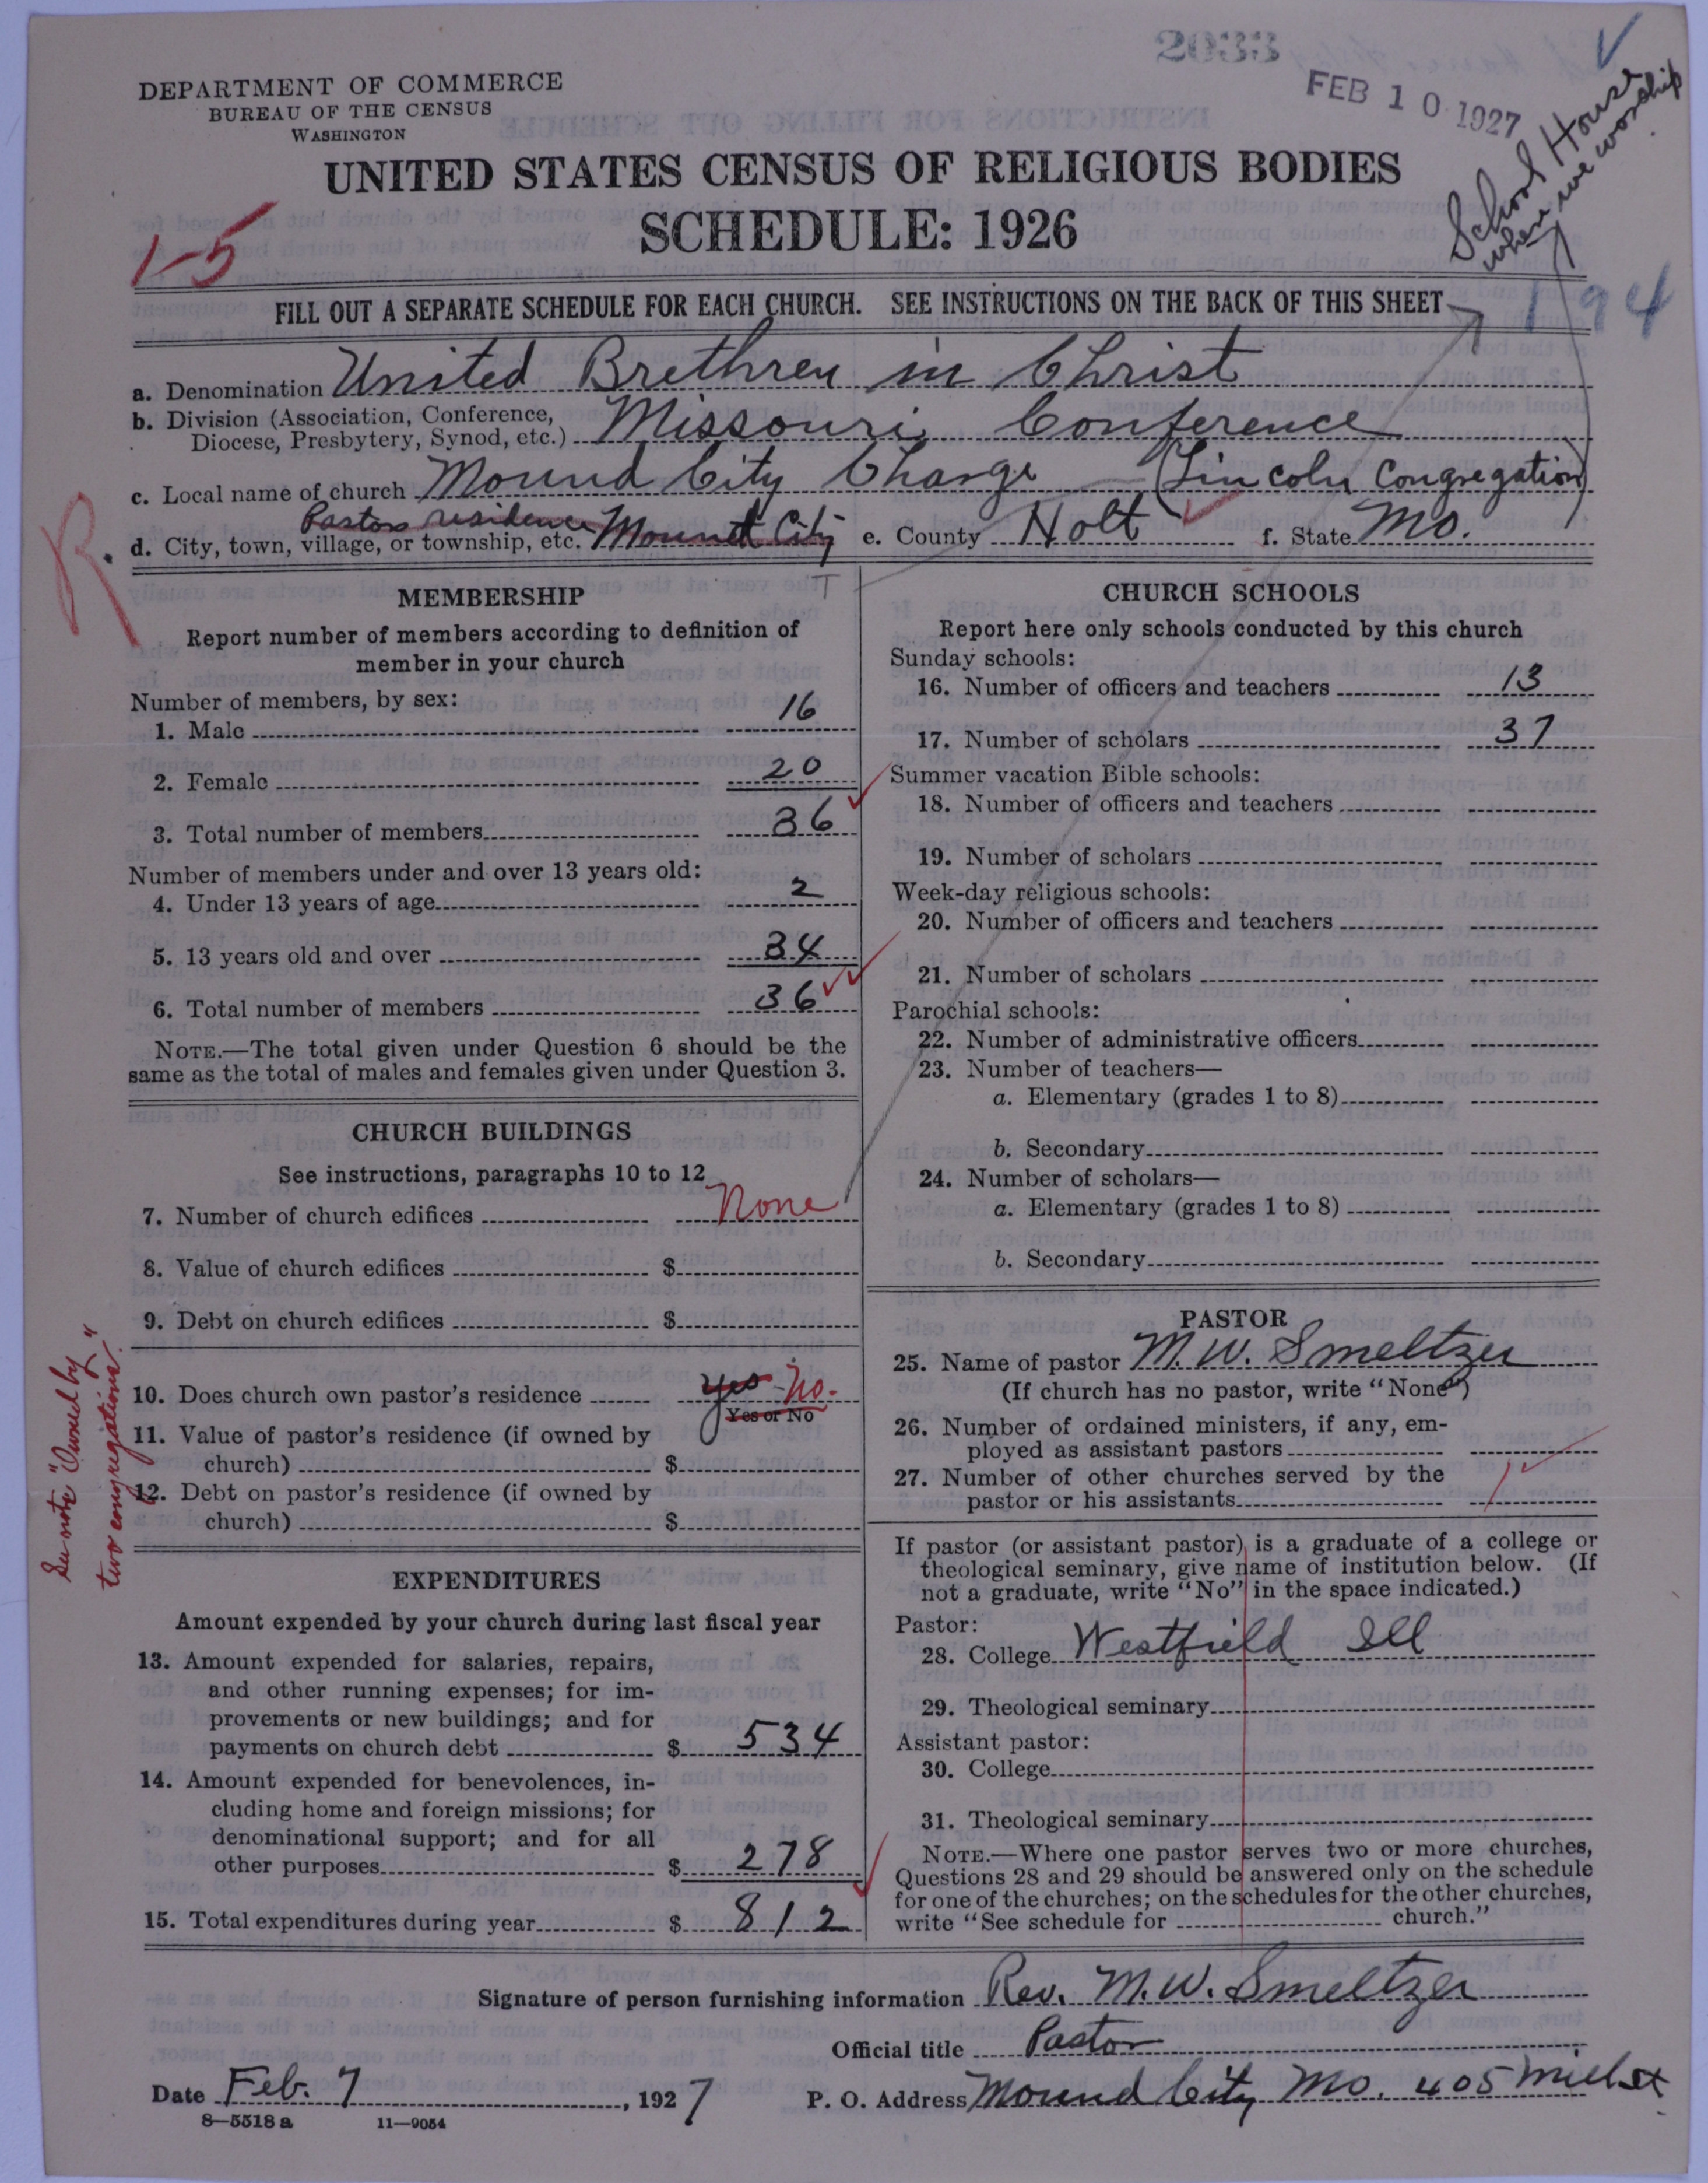 2033
FEB 10 1927
School House
when we worship
DEPARTMENT OF COMMERCE
BUREAU OF THE CENSUS
WASHINGTON
UNITED STATES CENSUS OF RELIGIOUS BODIES
SCHEDULE: 1926
1-5
194
FILL OUT A SEPARATE SCHEDULE FOR EACH CHURCH. SEE INSTRUCTIONS ON THE BACK OF THIS SHEET
a. Denomination United Brethren in Christ
b. Division (Association, Conference,
Diocese, Presbytery, Synod, etc.) Missouri Conference
c. Local name of church Mound City Charge (Lincoln Congregation)
Pastors residence
d. City, town, village, or township, etc. Mound City e. County Holt f. State Mo.
R.
MEMBERSHIP
Report number of members according to definition of
member in your church
Number of members, by sex:
1. Male 16
2. Female 20
3. Total number of members 36
Number of members under and over 13 years old:
4. Under 13 years of age 2
5. 13 years old and over 34
6. Total number of members 36
NOTE.—The total given under Question 6 should be the
same as the total of males and females given under Question 3.
CHURCH BUILDINGS
See instructions, paragraphs 10 to 12
7. Number of church edifices None
8. Value of church edifices $
9. Debt on church edifices $
10. Does church own pastor's residence Yes No.
Yes or No
11. Value of pastor's residence (if owned by
church) $
12. Debt on pastor's residence (if owned by
church) $
See note "Owned by
two congregations."
EXPENDITURES
Amount expended by your church during last fiscal year
13. Amount expended for salaries, repairs,
and other running expenses; for im-
provements or new buildings; and for
payments on church debt $ 534
14. Amount expended for benevolences, in-
cluding home and foreign missions; for
denominational support; and for all
other purposes $ 278
15. Total expenditures during year $ 812
CHURCH SCHOOLS
Report here only schools conducted by this church
Sunday schools:
16. Number of officers and teachers 13
17. Number of scholars 37
Summer vacation Bible schools:
18. Number of officers and teachers
19. Number of scholars
Week-day religious schools:
20. Number of officers and teachers
21. Number of scholars
Parochial schools:
22. Number of administrative officers
23. Number of teachers—
a. Elementary (grades 1 to 8)
b. Secondary
24. Number of scholars—
a. Elementary (grades 1 to 8)
b. Secondary
PASTOR
25. Name of pastor M. W. Smeltzer
(If church has no pastor, write "None")
26. Number of ordained ministers, if any, em-
ployed as assistant pastors
27. Number of other churches served by the
pastor or his assistants 1
If pastor (or assistant pastor) is a graduate of a college or
theological seminary, give name of institution below. (If
not a graduate, write "No" in the space indicated.)
Pastor:
28. College Westfield Ill
29. Theological seminary
Assistant pastor:
30. College
31. Theological seminary
NOTE.—Where one pastor serves two or more churches,
Questions 28 and 29 should be answered only on the schedule
for one of the churches; on the schedules for the other churches,
write "See schedule for church."
Signature of person furnishing information Rev. M. W. Smeltzer
Official title Pastor
Date Feb. 7, 1927 P. O. Address Mound City Mo. 405 Mill st
8—5518 a 11—9054